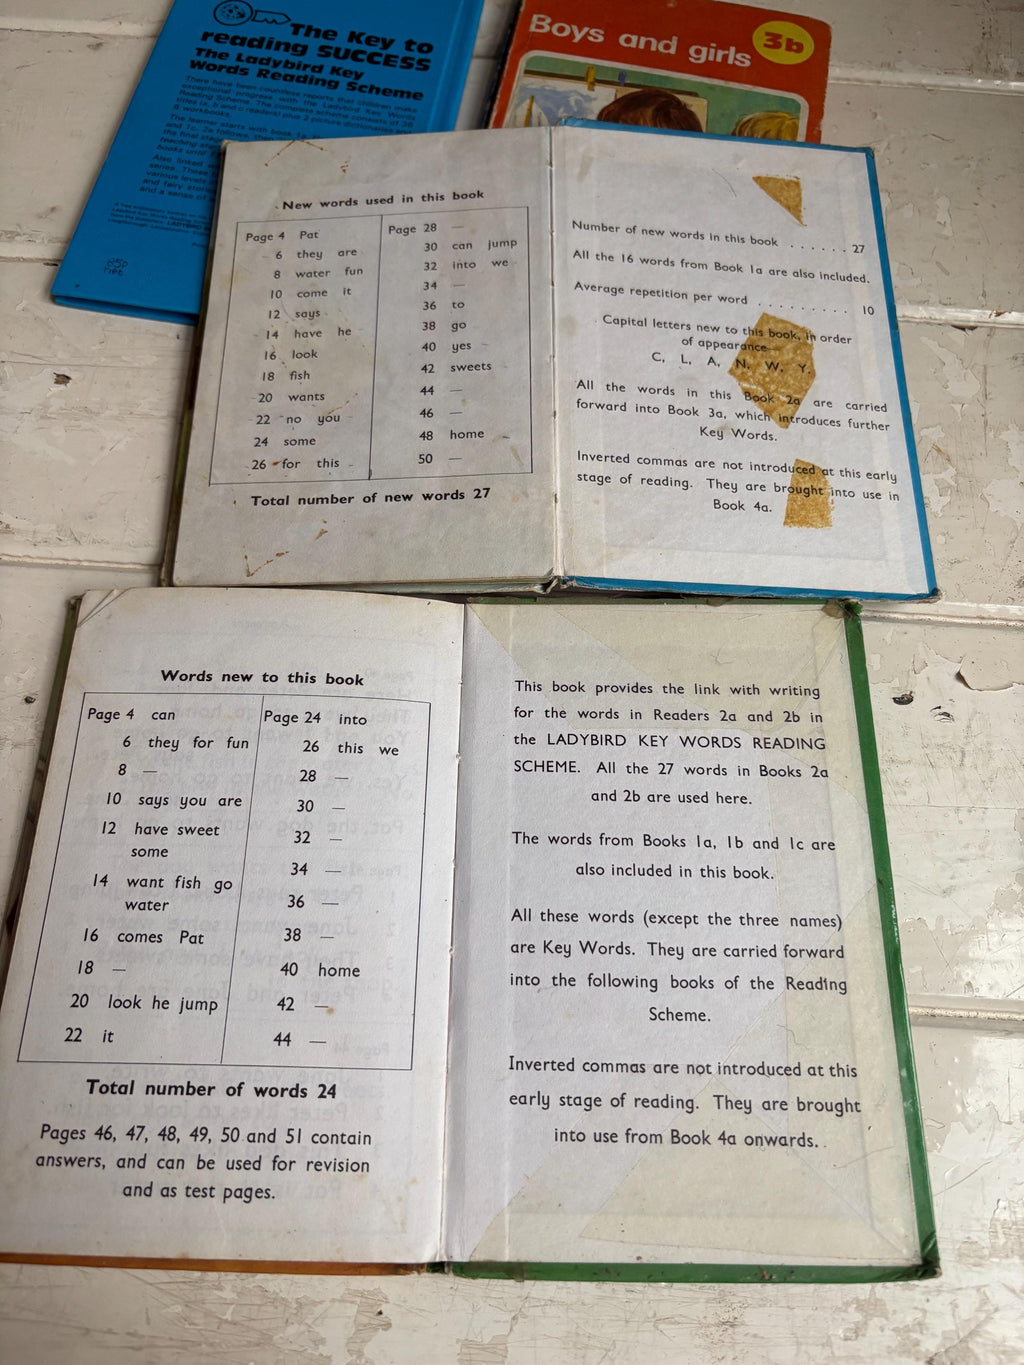 The Key to
reading SUCCESS
The Ladybird Key
Words Reading Scheme
There have been countless reports that children make
exceptional progress with the Ladybird Key Words
Reading Scheme. The complete scheme consists of 36
titles (a, b and c readers) plus 2 picture dictionaries and
6 workbooks.
The learner starts with book 1a
and 1c. 2a follows, then
the final stage
teaching
books until
Also linked
series. Three
various levels
and fairy stories
and a sense of
Boys and girls
3b
New words used in this book
Page 4 Pat
6 they are
8 water fun
10 come it
12 says
14 have he
16 look
18 fish
20 wants
22 no you
24 some
26 for this
Page 28 —
30 can jump
32 into we
34 —
36 to
38 go
40 yes
42 sweets
44 —
46 —
48 home
50 —
Total number of new words 27
Number of new words in this book . . . . . . 27
All the 16 words from Book 1a are also included.
Average repetition per word . . . . . . . . 10
Capital letters new to this book, in order
of appearance—
C, L, A, N, W, Y.
All the words in this Book 2a are carried
forward into Book 3a, which introduces further
Key Words.
Inverted commas are not introduced at this early
stage of reading. They are brought into use in
Book 4a.
Words new to this book
Page 4 can
6 they for fun
8 —
10 says you are
12 have sweet
some
14 want fish go
water
16 comes Pat
18 —
20 look he jump
22 it
Page 24 into
26 this we
28 —
30 —
32 —
34 —
36 —
38 —
40 home
42 —
44 —
Total number of words 24
Pages 46, 47, 48, 49, 50 and 51 contain
answers, and can be used for revision
and as test pages.
This book provides the link with writing
for the words in Readers 2a and 2b in
the LADYBIRD KEY WORDS READING
SCHEME. All the 27 words in Books 2a
and 2b are used here.
The words from Books 1a, 1b and 1c are
also included in this book.
All these words (except the three names)
are Key Words. They are carried forward
into the following books of the Reading
Scheme.
Inverted commas are not introduced at this
early stage of reading. They are brought
into use from Book 4a onwards.